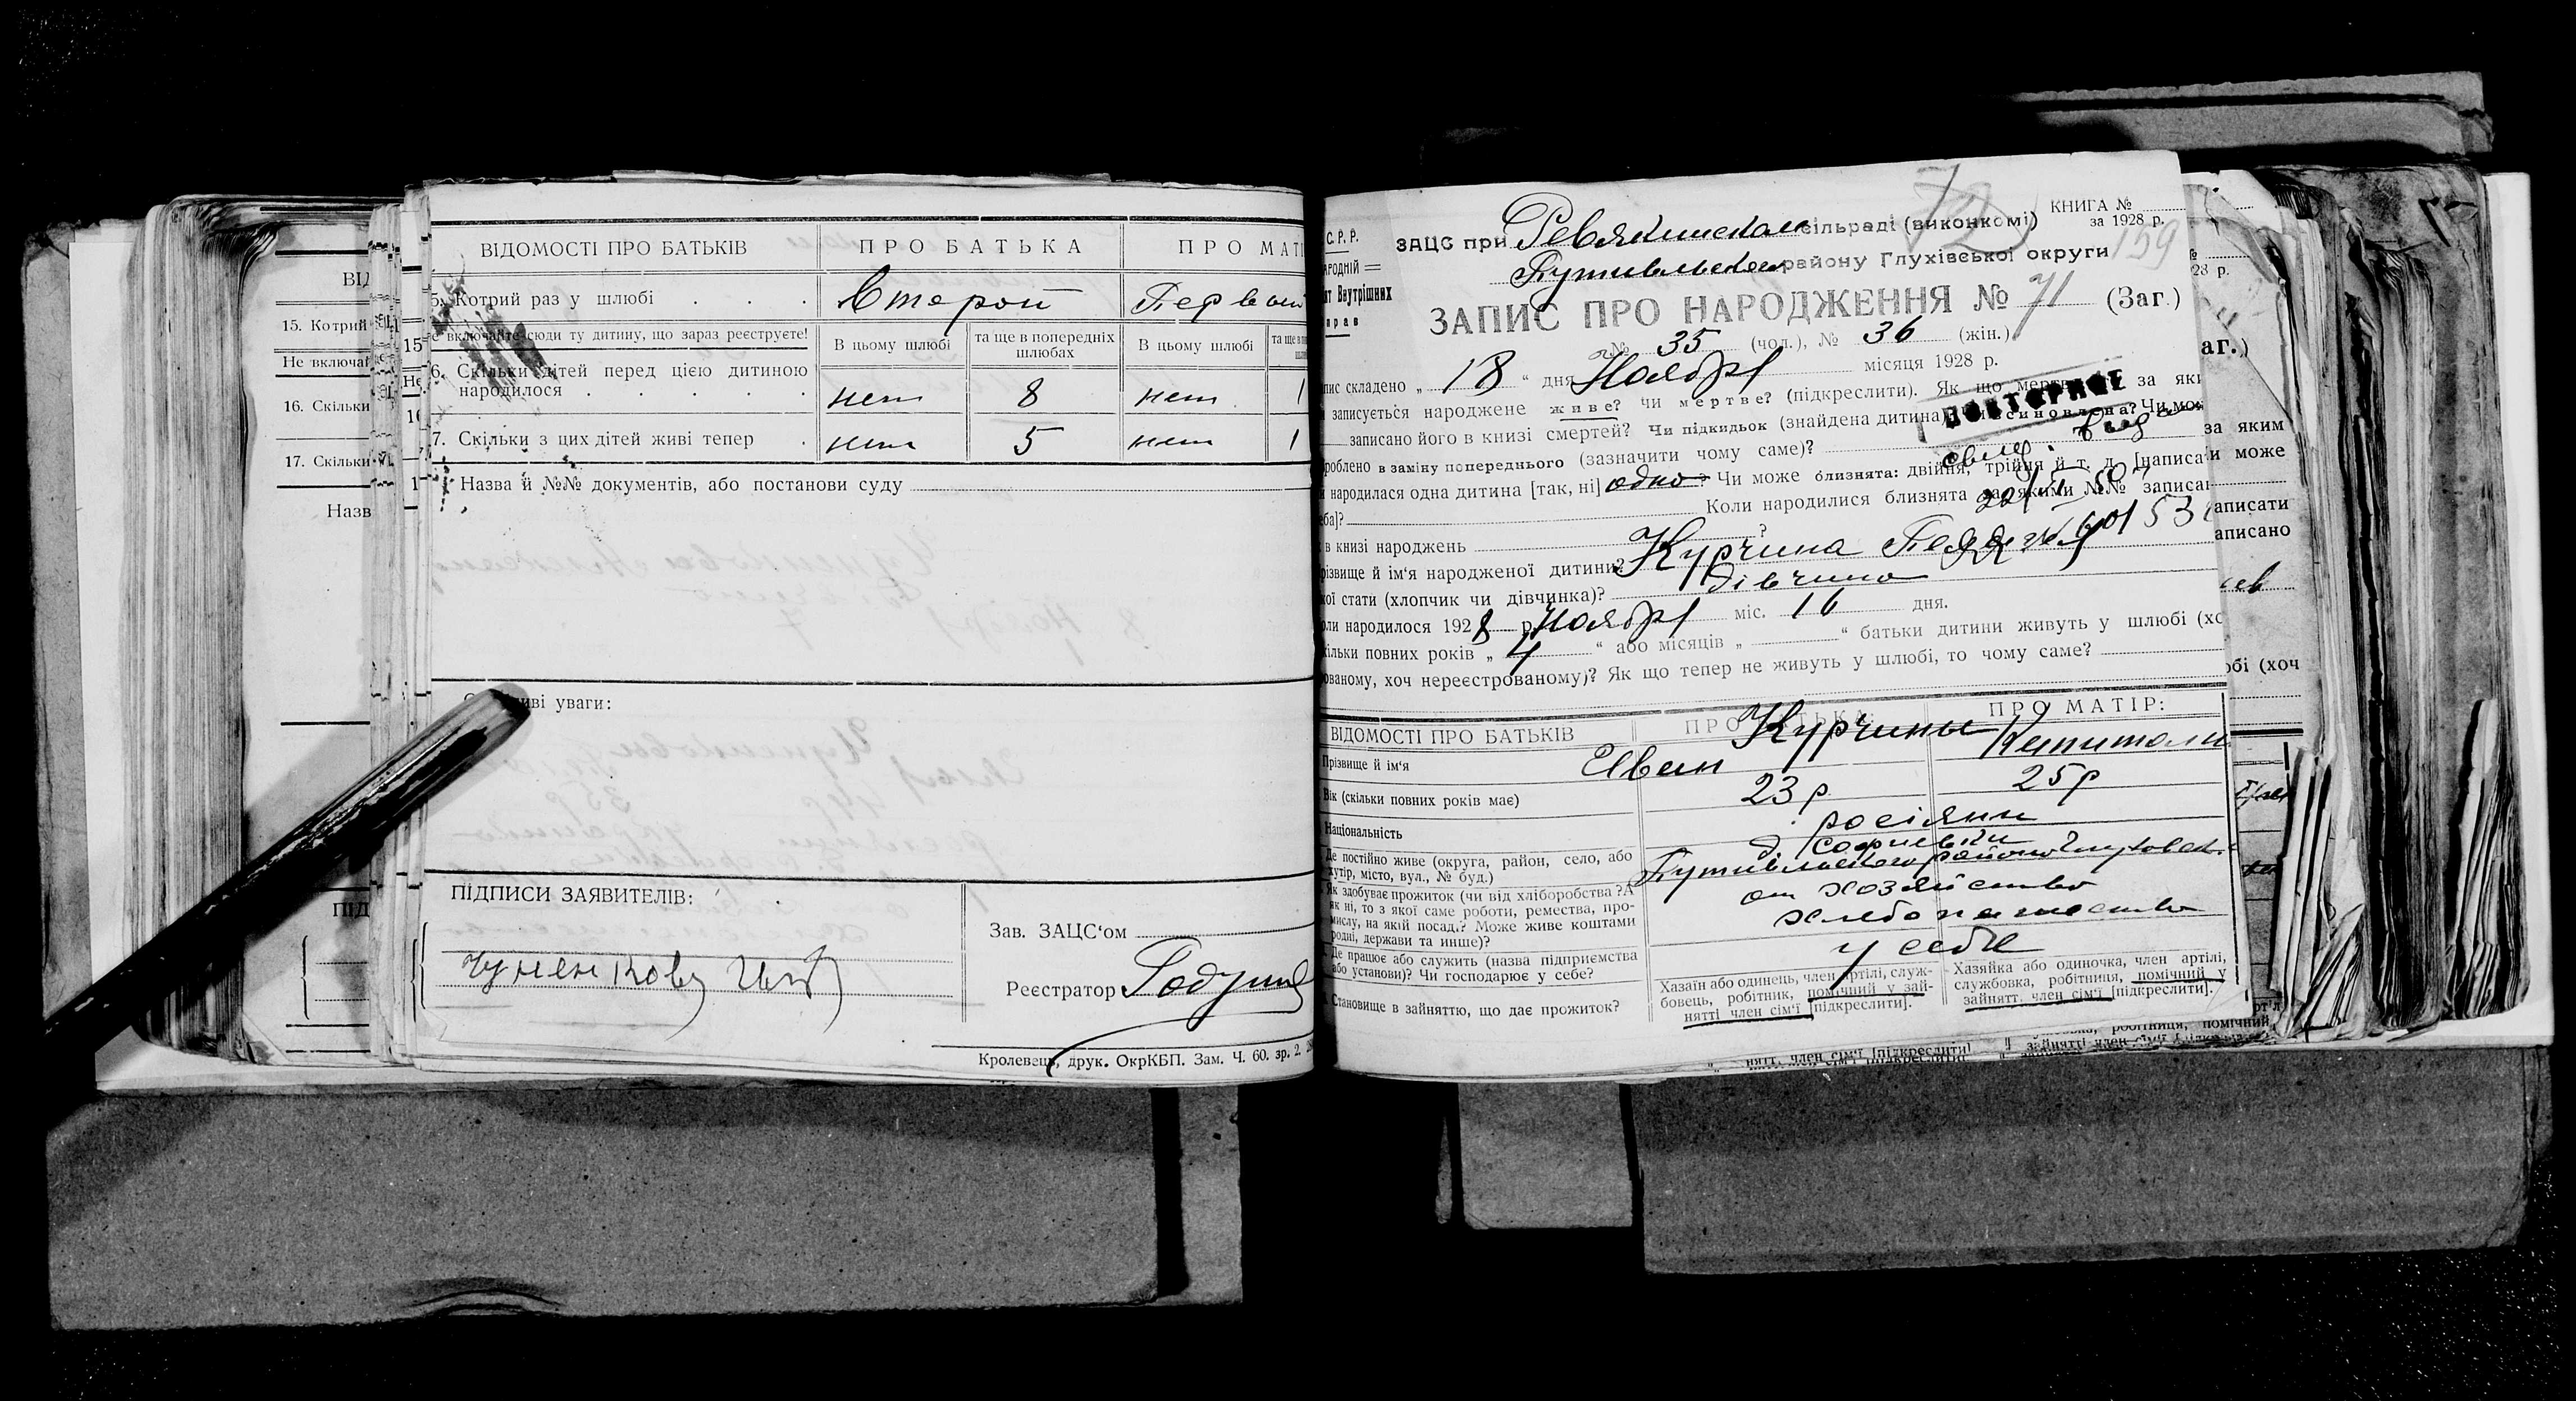 ВІДОМОСТІ ПРО БАТЬКІВ ПРО БАТЬКА ПРО МАТІ
5. Котрий раз у шлюбі Второй Первый
е включайте сюди ту дитину, що зараз реєструєте! В цьому шлюбі та ще в попередніх шлюбах В цьому шлюбі та ще в
6. Скільки дітей перед цією дитиною народилося нет 8 нет 1
7. Скільки з цих дітей живі тепер нет 5 нет 1
Назва й №№ документів, або постанови суду
иві уваги:
ПІДПИСИ ЗАЯВИТЕЛІВ:
Зав. ЗАЦС‘ом
Реєстратор
Кролевець, друк. ОкрКБП. Зам. Ч. 60. зр. 2.
ВІД
15. Котрий
Не включай
16. Скільки
17. Скільки
Назв
ПІД
С. Р. Р.
КНИГА №
ЗАЦС при Ревякинском сільраді (виконкомі) за 1928 р.
72
159
АРОДНІЙ
Путивльском району Глухівської округи
ат Внутрішних
рав
ЗАПИС ПРО НАРОДЖЕННЯ № 71 (Заг.)
№ 35 (чол.), № 36 (жін.)
пис складено „ 18 “ дня Ноября місяця 1928 р.
записується народжене живе? чи мертве? (підкреслити). Як що мертве за яки
ПОВТОРНОЕ
записано його в книзі смертей? Чи підкидьок (знайдена дитина)? Чи усиновлена? Чи мож
роблено в заміну попереднього (зазначити чому саме)?
свид.
и народилася одна дитина [так, ні] одно? Чи може близнята: двійня, трійня й т. д. [написа
еба]? Коли народилися близнята за якими №№ записа
в книзі народжень ?
різвище й ім'я народженої дитини? Курчина
кої стати (хлопчик чи дівчинка)? дівчина
оли народилося 1928 р. Ноября міс. 16 дня.
кільки повних років „ 4 “ або місяців „ “ батьки дитини живуть у шлюбі (хо
ованому, хоч нереєстрованому)? Як що тепер не живуть у шлюбі, то чому саме?
ВІДОМОСТІ ПРО БАТЬКІВ ПРО БАТЬКА: ПРО МАТІР:
Прізвище й ім‘я Курчины Иван Капитолин
Вік (скільки повних років має) 23 р 25 р
Національність росіяни
Де постійно живе (округа, район, село, або хутір, місто, вул., № буд.) д. Софиевки
Як здобуває прожиток (чи від хліборобства? А як ні, то з якої саме роботи, ремества, промислу, на якій посаді? Може живе коштами родні, держави та инше)? от хозяйства хлебопашество
Де працює або служить (назва підприємства або установи)? Чи господарює у себе? у себе
Становище в зайняттю, що дає прожиток? Хазаїн або одинець, член артілі, службовець, робітник, помічний у зайнятті член сім‘ї [підкреслити]. Хазяйка або одиночка, член артілі, службовка, робітниця, помічний у зайнятт. член сім‘ї [підкреслити].
аг.)
за яким
и може
аписати
аписано
обі (хоч